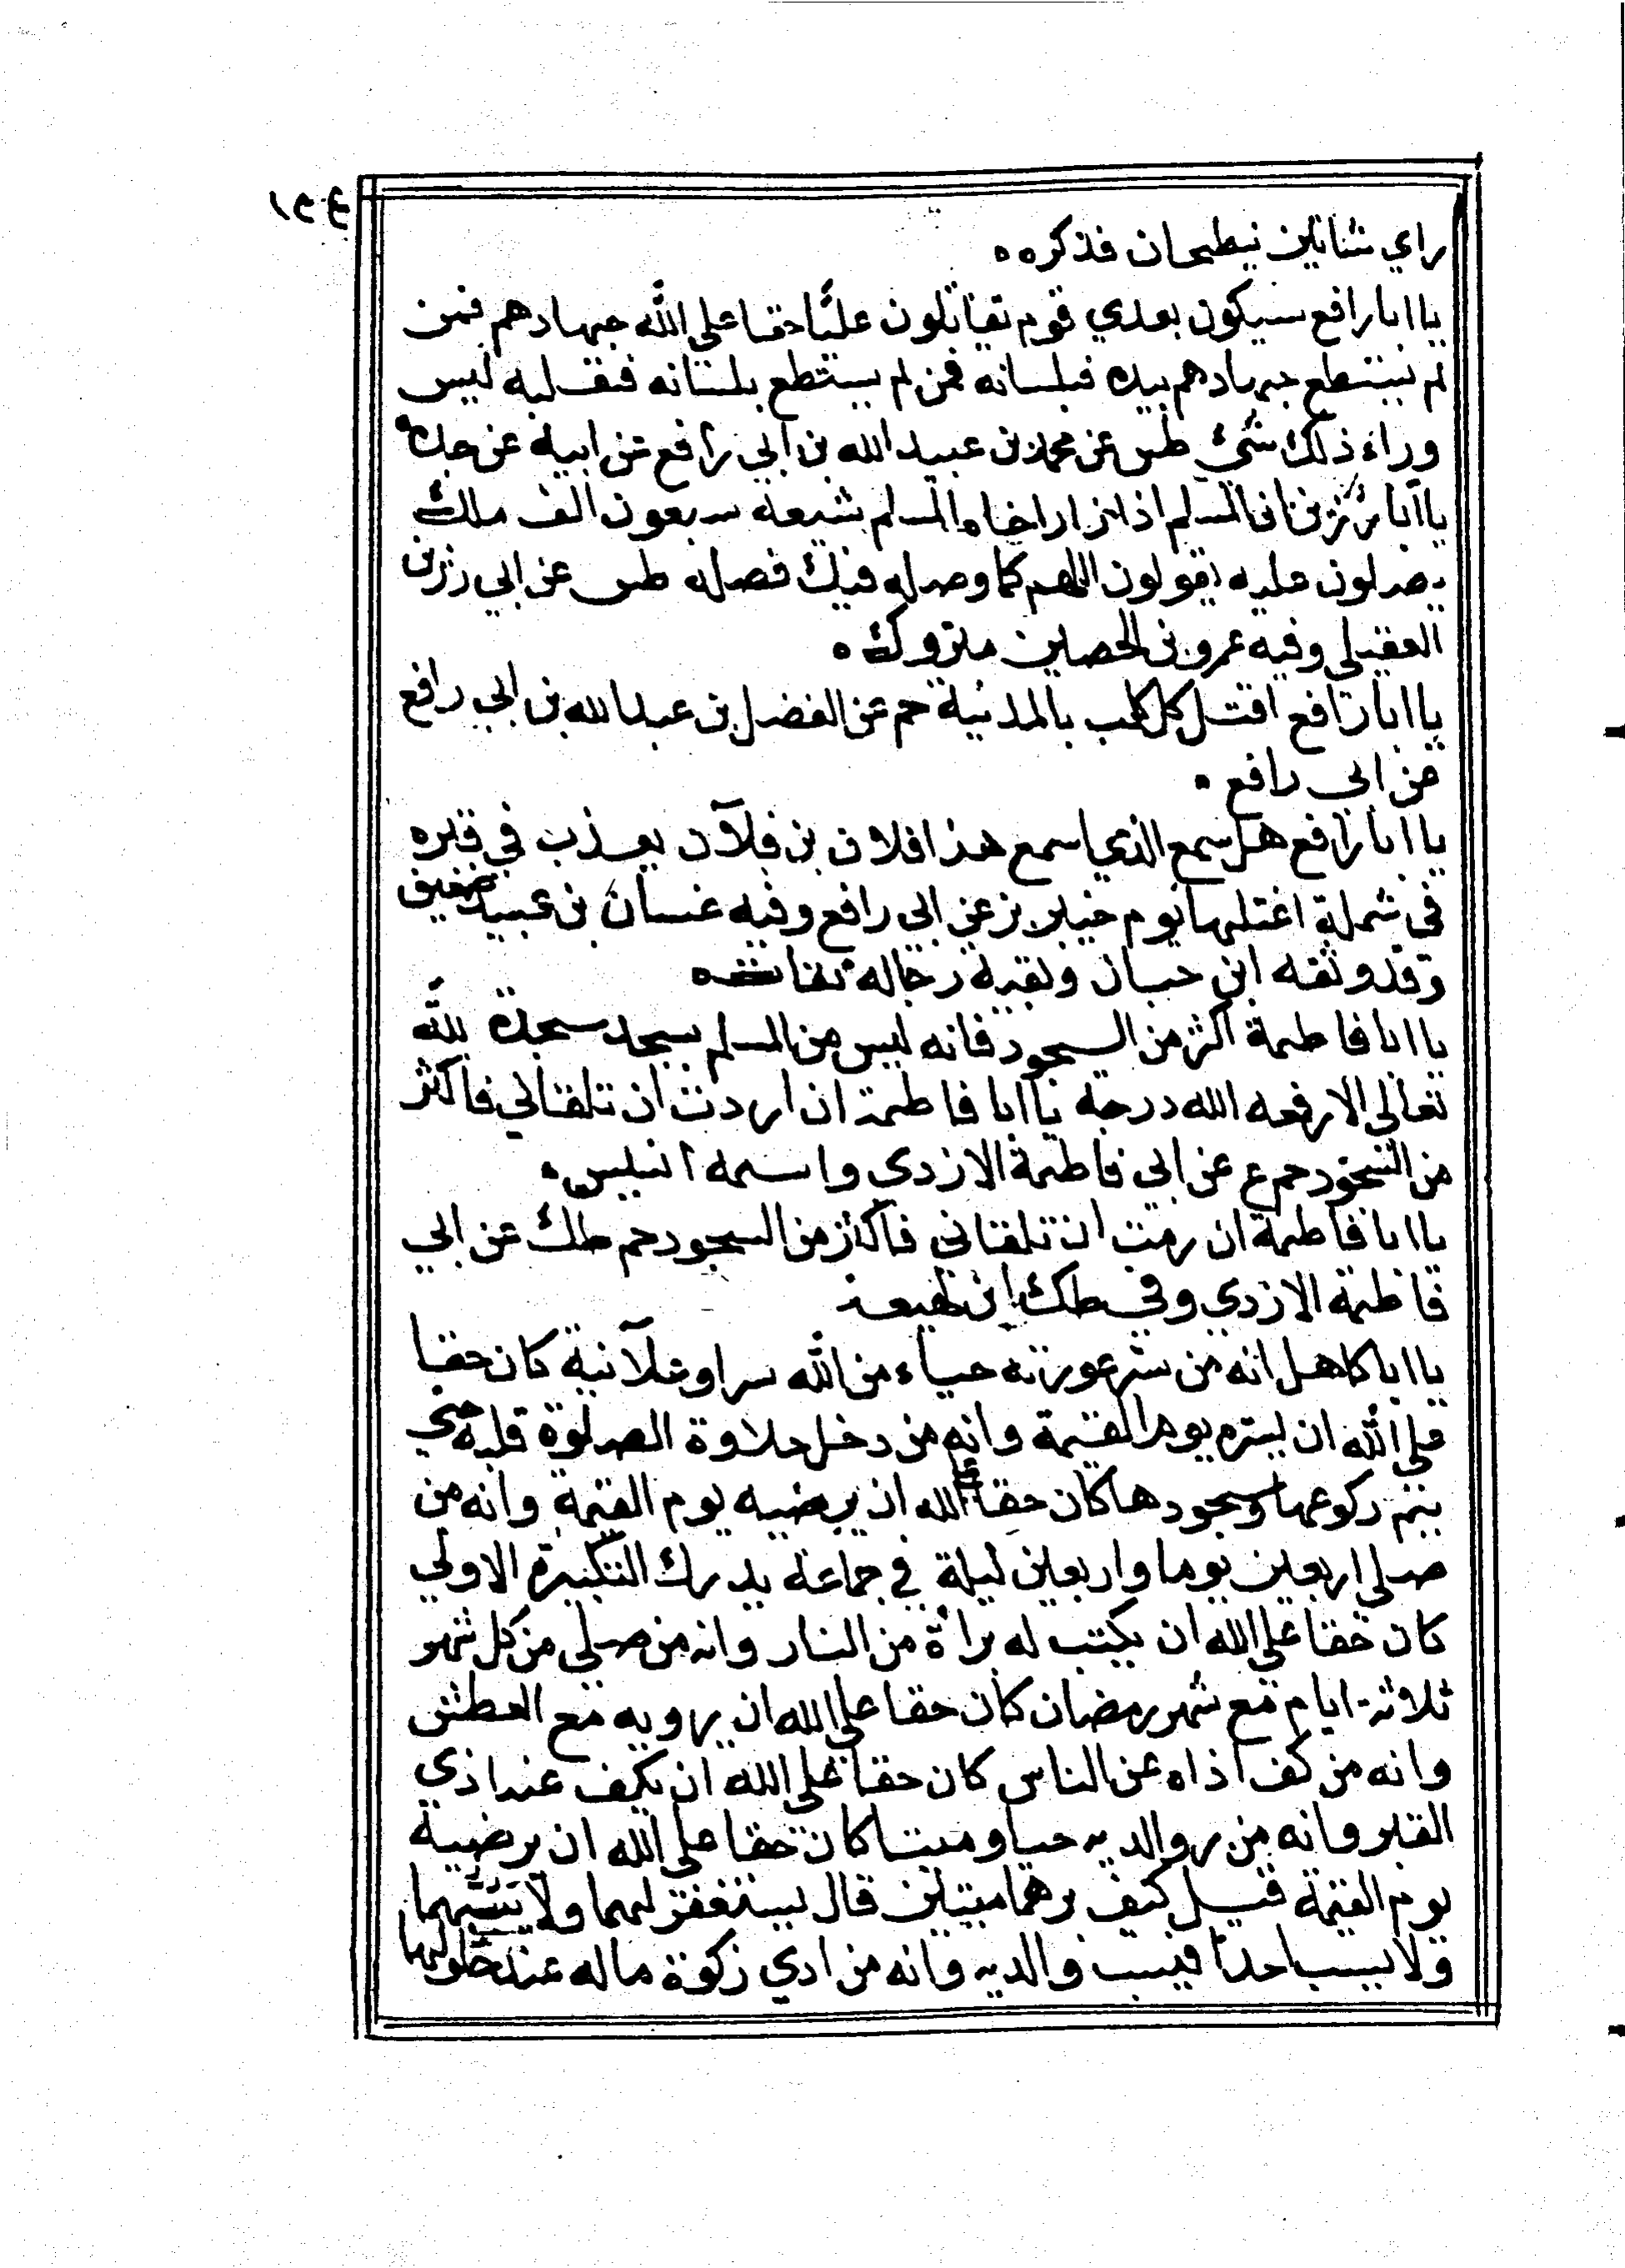 راي شاتين ينطحان فذكره ه
يا ابا رافع سيكون بعدي قوم يقاتلون عليًا حقا على الله جهادهم فمن
لم يستطع جهادهم بيده فبلسانه فمن لم يستطع بلسانه فبقلبه ليس
وراء ذلك شيئ طس عن محمد بن عبيد الله بن ابي رافع عن ابيه عن جده ه
يا ابا رزين ان المسلم اذا زار اخاه المسلم شيعه سبعون الف ملك
يصلون عليه يقولون اللهم كما وصله فيك فصله طس عن ابي رزين
العقيلي وفيه عمرو بن الحصين متروك ه
يا ابا رافع اقتل كل كلب بالمدينة حم عن الفضل بن عبد الله بن ابي رافع
عن ابي رافع ه
يا ابا رافع هل سمع الذي اسمع هذا فلان بن فلان يعذب في قبره
في شملة اغتلها يوم خيبر بز عن ابي رافع وفيه غسان بن عبيد ضعيف
وقد وثقه ابن حبان وبقية رجاله ثقات ه
يا ابا فاطمة اكثر من السجود فانه ليس من المسلم يسجد سجدة لله
تعالي الا رفعه الله درجة يا ابا فاطمة ان اردت ان تلقاني فاكثر
من السجود حم ع عن ابي فاطمة الازدي واسمه انيس ه
يا ابا فاطمة ان رمت ان تلقاني فاكثر من السجود حم طك عن ابي
فاطمة الازدي وفي طك ابن لهيعة
يا ابا كاهل انه من ستر عورته حياء من الله سرا وعلانية كان حقا
علي الله ان يستره يوم القيمة وانه من دخل حلاوة الصلوة قلبه حتي
يتم ركوعها وسجودها كان حقا علي الله ان يرضيه يوم القيمة وانه من
صلي اربعين يوما واربعين ليلة في جماعة يدرك التكبيرة الاولي
كان حقا علي الله ان يكتب له براة من النار وانه من صلي من كل شهر
ثلاثة ايام مع شهر رمضان كان حقا علي الله ان يرويه مع العطش
وانه من كف اذاه عن الناس كان حقا علي الله ان يكف عنه اذي
القبر وانه من بر والديه حيا وميتا كان حقا علي الله ان يرضيه
يوم القيمة قيل كيف برهما ميتين قال يستغفر لهما ولا يسبهما
ولا يسب احدا فيسب والديه وانه من ادي زكوة ماله عند حلولها